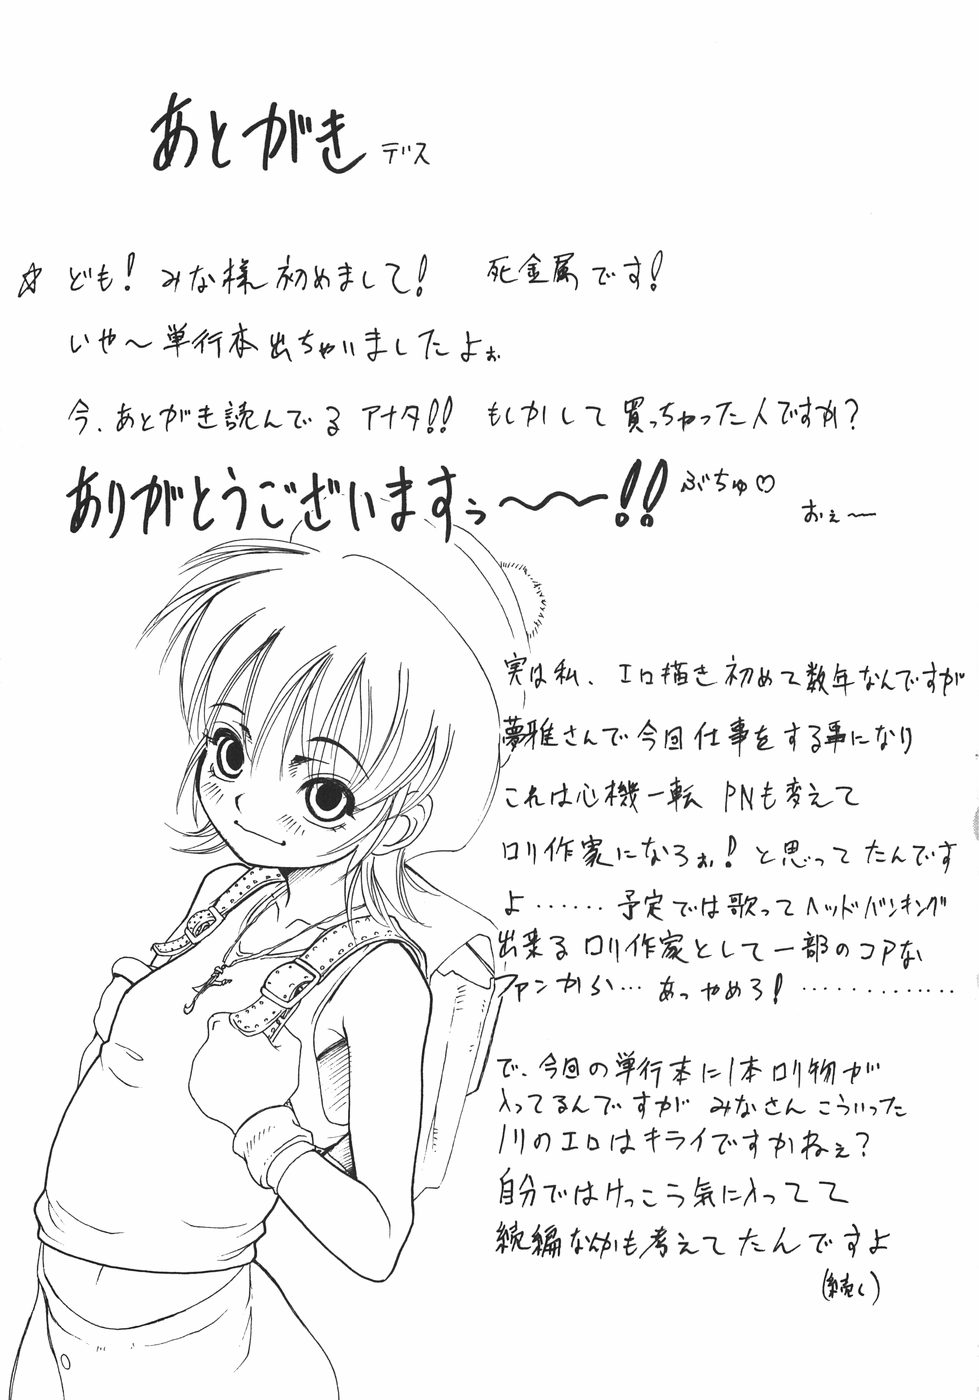 あとがき デス
☆ ども! みな様 初めまして! 死金属です!
いや〜単行本出ちゃいましたよぉ
今、あとがき読んでる アナタ!! もしかして 買っちゃった人ですか?
ありがとうございますぅ〜〜!! ぶちゅ♡
おぇ〜
実は私、エロ描き初めて数年なんですが
夢雅さんで今回仕事をする事になり
これは心機一転 PNも変えて
ロリ作家になろぉ! と思ってたんです
よ…… 予定では歌ってヘッドバンキング
出来るロリ作家として一部のコアな
ファンから… あっやめろ! …………
で、今回の単行本に1本ロリ物が
入ってるんですが みなさんこういった
ノリのエロはキライですかねぇ?
自分ではけっこう気に入ってて
続編なんかも考えてたんですよ
(続く)